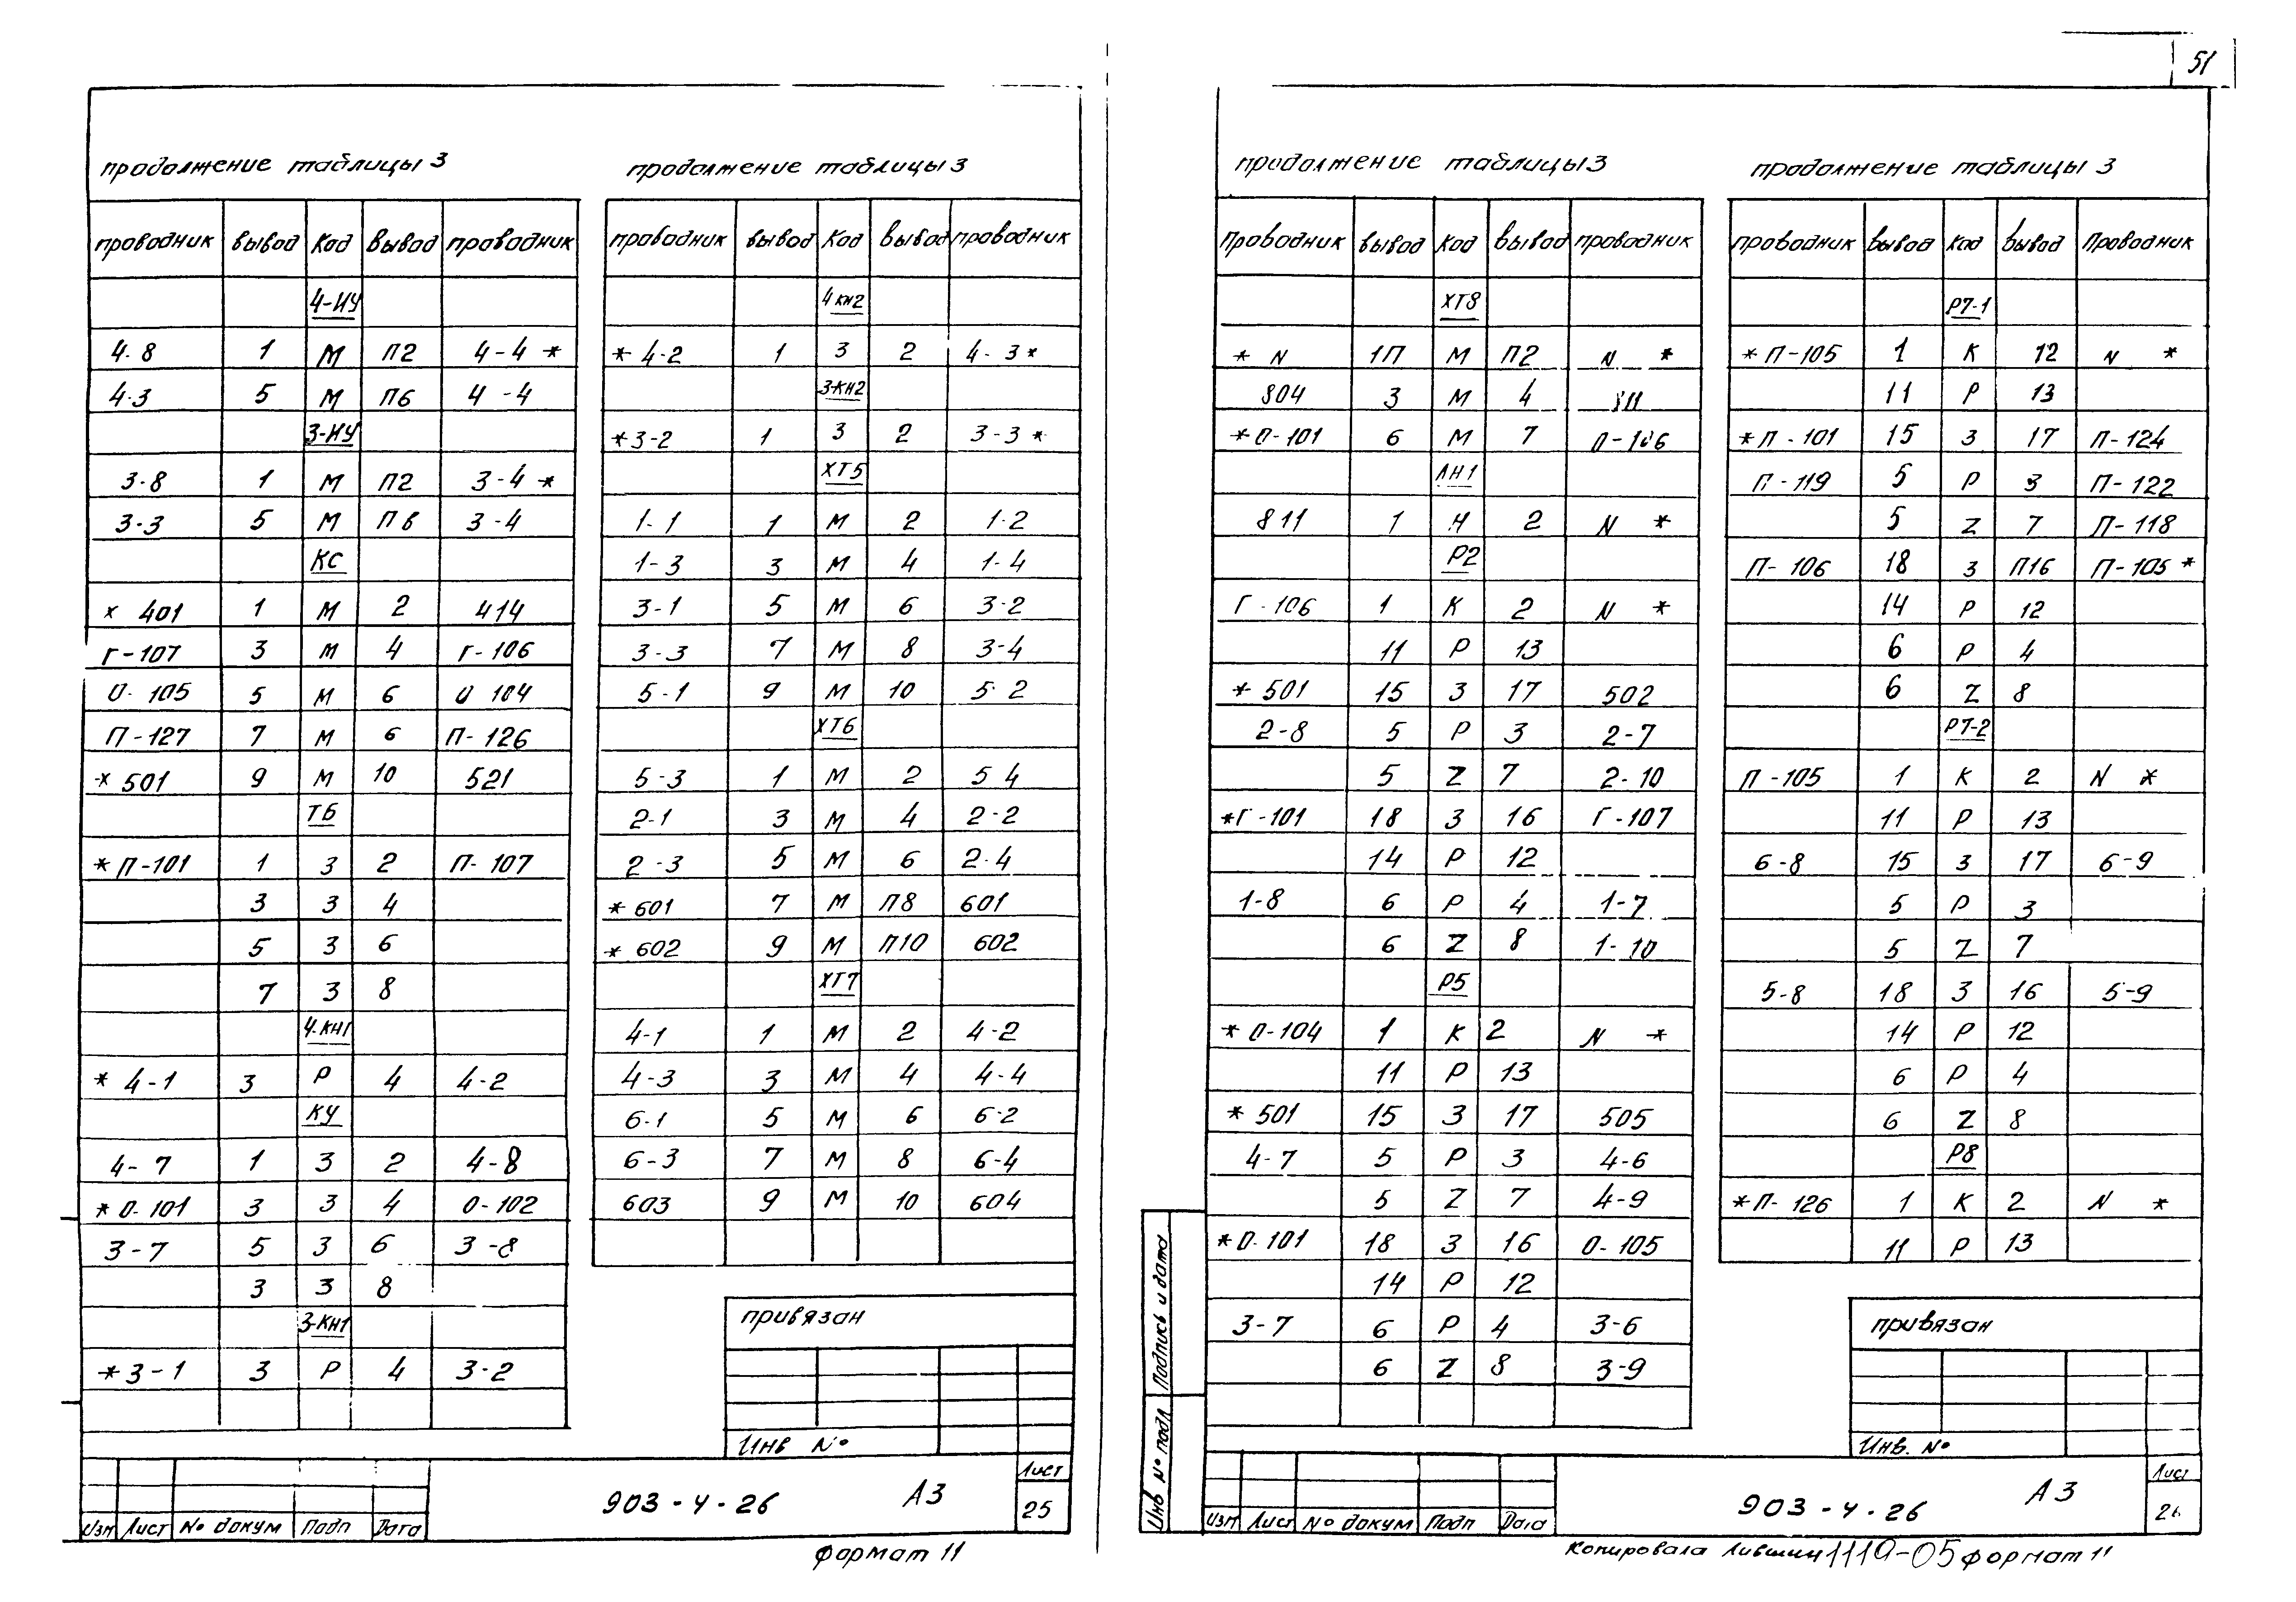 51
продолжение таблицы 3
проводник вывод Код вывод проводник
4-ИУ
4-8 1 М П2 4-4 *
4-3 5 М П6 4-4
3-ИУ
3-8 1 М П2 3-4 *
3-3 5 М П6 3-4
КС
* 401 1 М 2 414
Г-107 3 М 4 Г-106
О-105 5 М 6 О 104
П-127 7 М 6 П-126
* 501 9 М 10 521
ТБ
* П-101 1 З 2 П-107
3 З 4
5 З 6
7 З 8
4-КН1
* 4-1 3 Р 4 4-2
КУ
4-7 1 З 2 4-8
* О-101 3 З 4 О-102
3-7 5 З 6 3-8
3 З 8
3-КН1
* 3-1 3 Р 4 3-2
продолжение таблицы 3
проводник вывод Код вывод проводник
4КН2
* 4-2 1 З 2 4-3 *
3-КН2
* 3-2 1 З 2 3-3 *
ХТ5
1-1 1 М 2 1-2
1-3 3 М 4 1-4
3-1 5 М 6 3-2
3-3 7 М 8 3-4
5-1 9 М 10 5-2
ХТ6
5-3 1 М 2 5 4
2-1 3 М 4 2-2
2-3 5 М 6 2-4
* 601 7 М П8 601
* 602 9 М П10 602
ХТ7
4-1 1 М 2 4-2
4-3 3 М 4 4-4
6-1 5 М 6 6-2
6-3 7 М 8 6-4
603 9 М 10 604
привязан
Инв №
Изм Лист № докум Подп Дата
903-4-26 А3
Лист
25
Формат 11
продолжение таблицы 3
Проводник вывод Код вывод проводник
ХТ8
* N 1П М П2 N *
804 3 М 4 811
* О-101 6 М 7 О-106
ЛН1
811 1 Н 2 N *
Р2
Г-106 1 К 2 N *
11 Р 13
* 501 15 З 17 502
2-8 5 Р 3 2-7
5 Z 7 2-10
* Г-101 18 З 16 Г-107
14 Р 12
1-8 6 Р 4 1-7
6 Z 8 1-10
Р5
* О-104 1 К 2 N *
11 Р 13
* 501 15 З 17 505
4-7 5 Р 3 4-6
5 Z 7 4-9
* О-101 18 З 16 О-105
14 Р 12
3-7 6 Р 4 3-6
6 Z 8 3-9
продолжение таблицы 3
проводник вывод Код вывод Проводник
Р7-1
* П-105 1 К 12 N *
11 Р 13
* П-101 15 З 17 П-124
П-119 5 Р 3 П-122
5 Z 7 П-118
П-106 18 З П16 П-105 *
14 Р 12
6 Р 4
6 Z 8
Р7-2
П-105 1 К 2 N *
11 Р 13
6-8 15 З 17 6-9
5 Р 3
5 Z 7
5-8 18 З 16 5-9
14 Р 12
6 Р 4
6 Z 8
Р8
* П-126 1 К 2 N *
11 Р 13
привязан
Инв. №
Инв № подл Подпись и дата
Изм Лист № докум Подп Дата
903-4-26 А3
Лист
Копировала 1119-05 формат 11